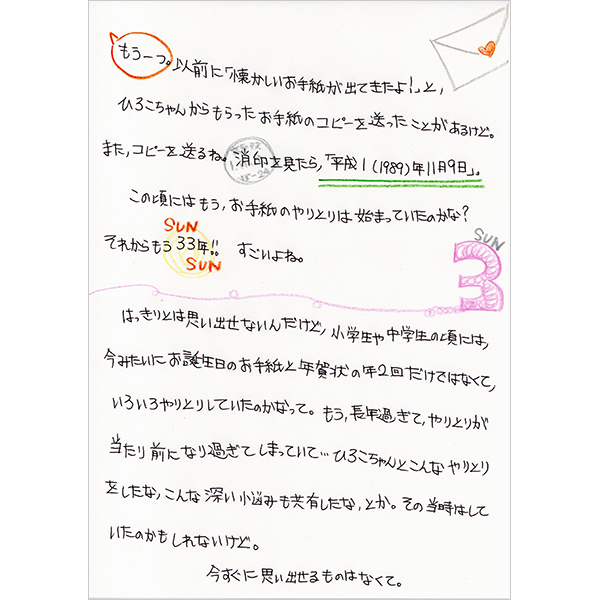 もう一つ。以前に「懐かしいお手紙が出てきたよ!」と,
ひろこちゃんからもらったお手紙のコピーを送ったことがあるけど。
また,コピーを送るね。消印を見たら,「平成1(1989)年11月9日」。
この頃にはもう,お手紙のやりとりは始まっていたのかな?
SUN
それからもう33年!! すごいよね。
SUN
SUN
3
はっきりとは思い出せないんだけど,小学生や中学生の頃には,
今みたいにお誕生日のお手紙と年賀状の年2回だけではなくて,
いろいろやりとりしていたのかなって。もう,長年過ぎて,やりとりが
当たり前になり過ぎてしまっていて…ひろこちゃんとこんなやりとり
をしたな,こんな深い悩みも共有したな,とか。その当時はして
いたのかもしれないけど。
今すぐに思い出せるものはなくて。